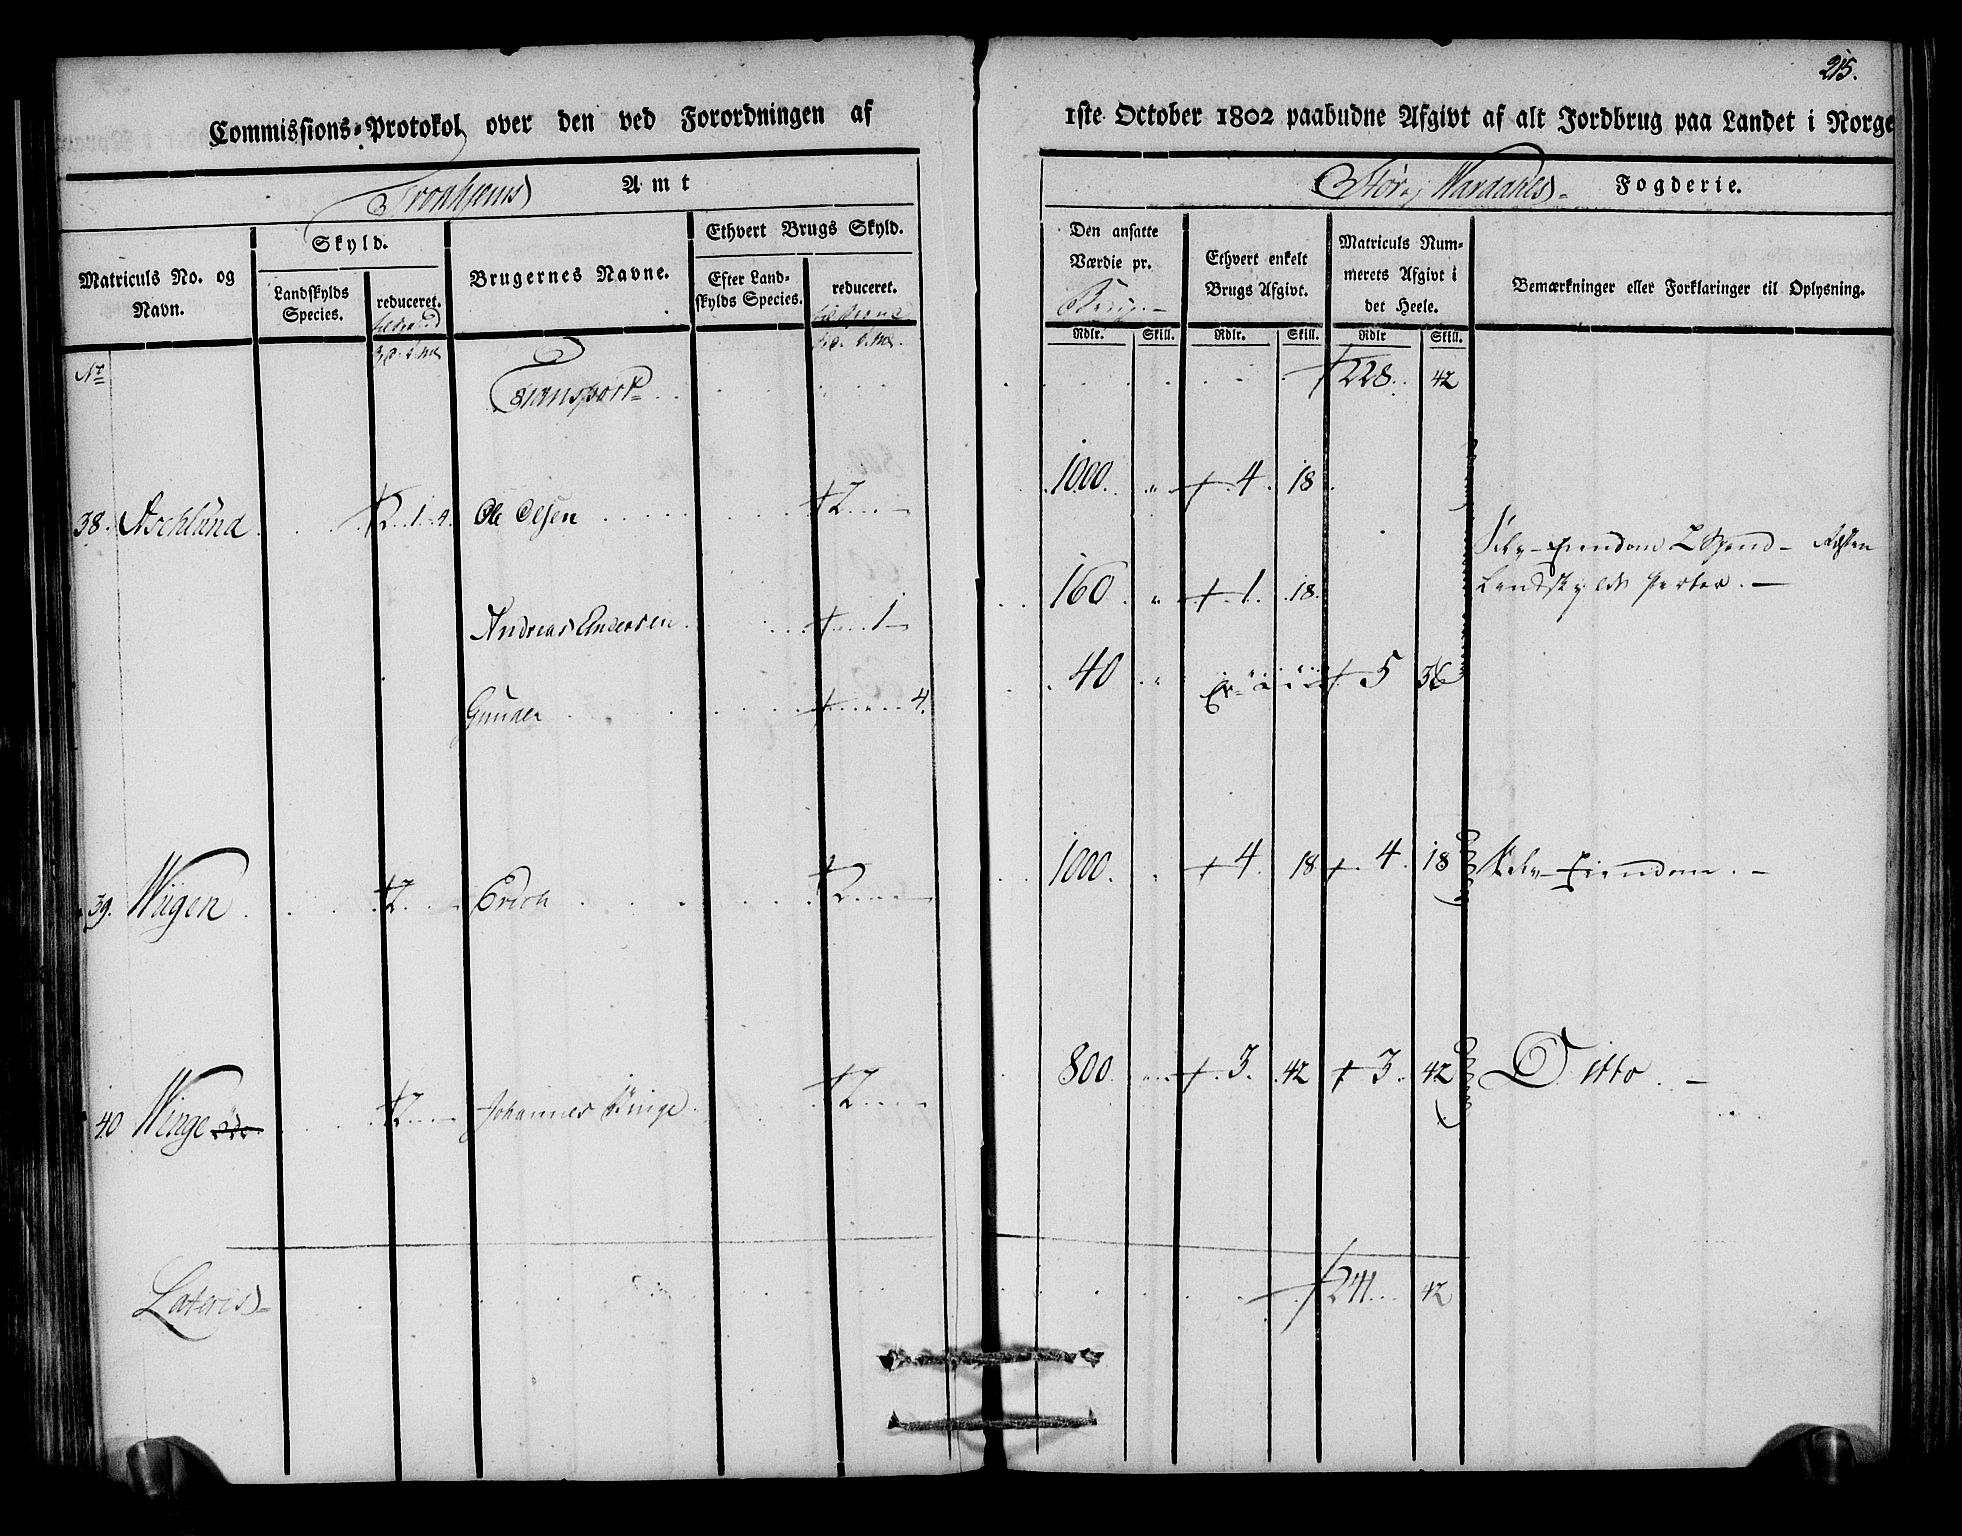 215.
Commissions-Protokol over den ved Forordningen af 1ste October 1802 paabudne Afgivt af alt Jordbrug paa Landet i Norge
Tronhjems Amt
Stør og Værdahls Fogderie.
Matriculs No. og Navn.
Skyld.
Landskylds Species.
reduceret.
Brugernes Navne.
Ethvert Brugs Skyld.
Efter Landskylds Species.
reduceret.
Den ansatte Værdie pr.
Ethvert enkelt Brugs Afgivt.
Matriculs Nummerets Afgivt i det Heele.
Bemærkninger eller Forklaringer til Oplysning.
Rdlr. Skill. Rdlr. Skill. Rdlr Skill.
No
Transport 228. 42
38. Aschlund 2. 1. 4. Ole Olsen 2 1000. " 4. 18.
Selv-Eiendom 2 Spand - Resten
Landskylds Parter. -
Andreas Andersen 1 160 " 1. 18.
Gunder 4. 40 " 5 36
39. Wiigen 2 Erich 2 1000. " 4. 18 4. 18 Selv-Eiendom. -
40 Winge 2 Johannes Winge 2 800. " 3. 42 3. 42 Ditto. -
Lateris 241. 42